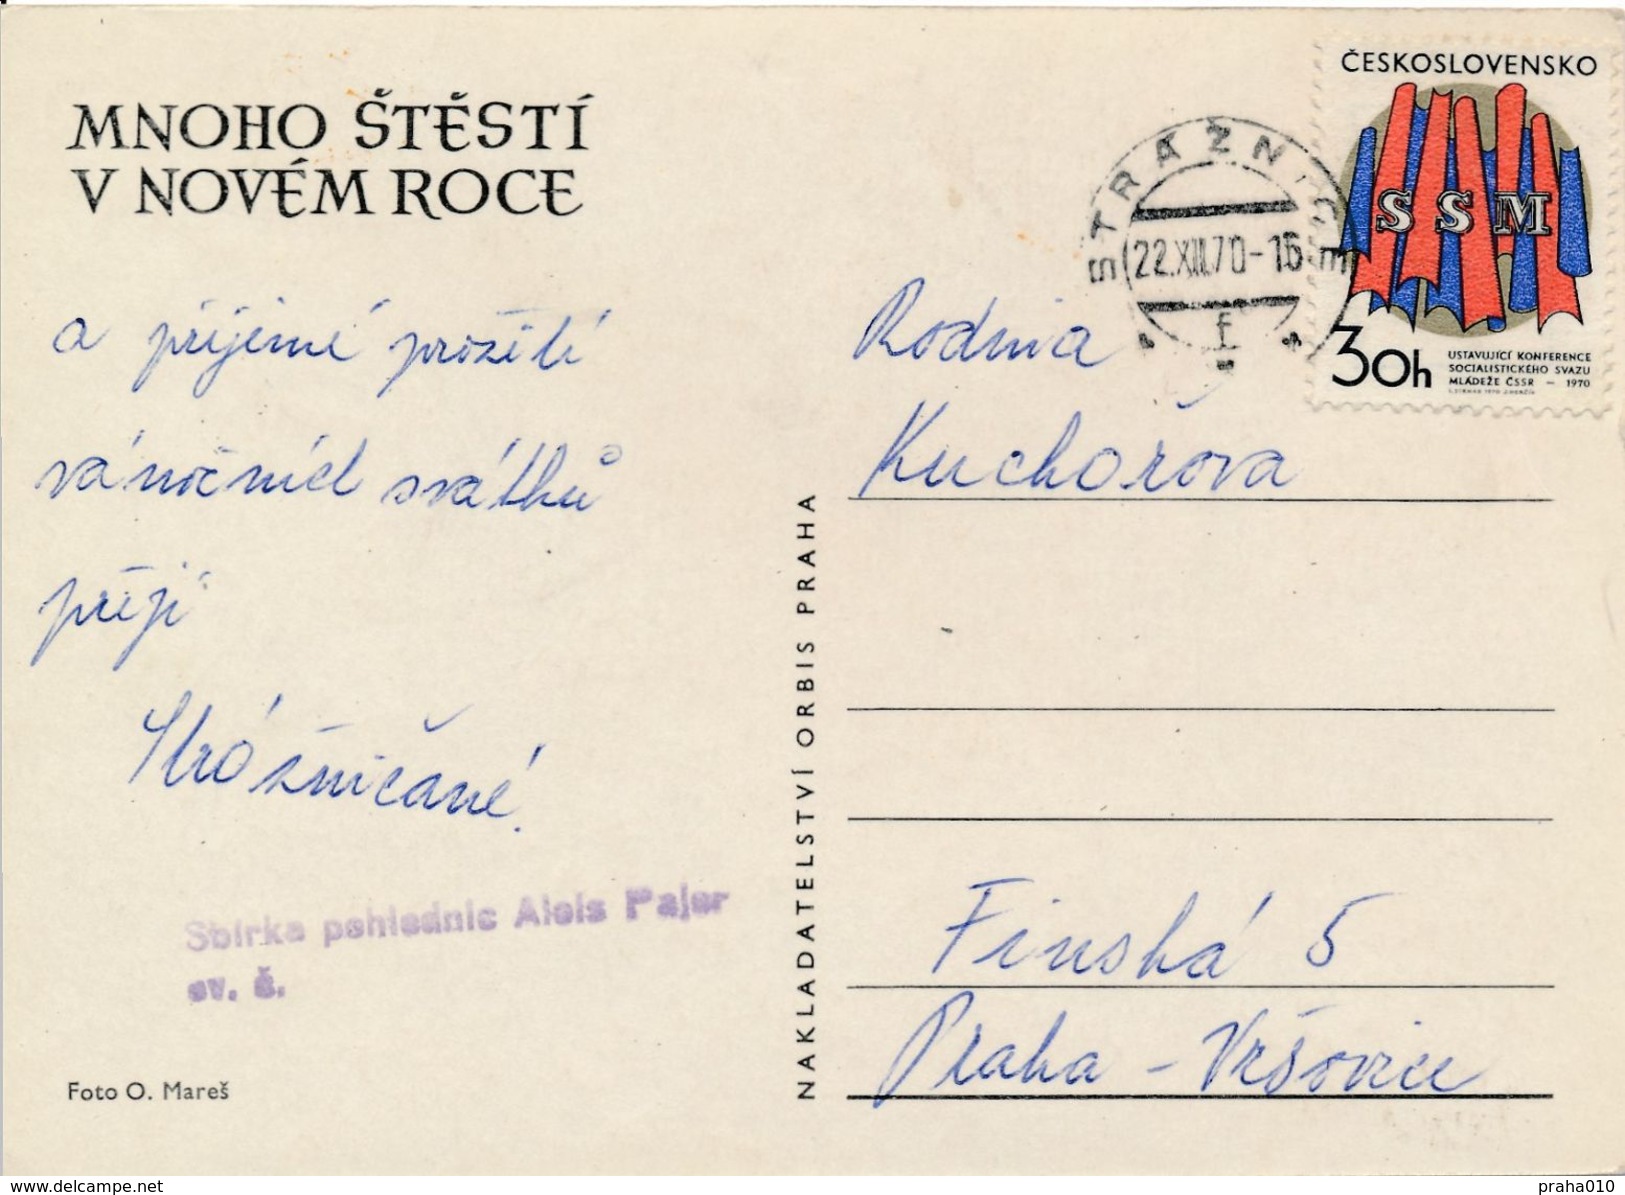 MNOHO ŠTĚSTÍ
V NOVÉM ROCE
a příjemné prožití
vánočních svátků
přejí
Strážničané.
Sbírka pohlednic Alois Pajer
ev. č.
Foto O. Mareš
NAKLADATELSTVÍ ORBIS PRAHA
STRÁŽNICE
22.XII.70-16
f
ČESKOSLOVENSKO
SSM
30h
USTAVUJÍCÍ KONFERENCE
SOCIALISTICKÉHO SVAZU
MLÁDEŽE ČSSR – 1970
Rodina
Kuchořova
Finská 5
Praha - Vršovice
www.delcampe.net
praha010